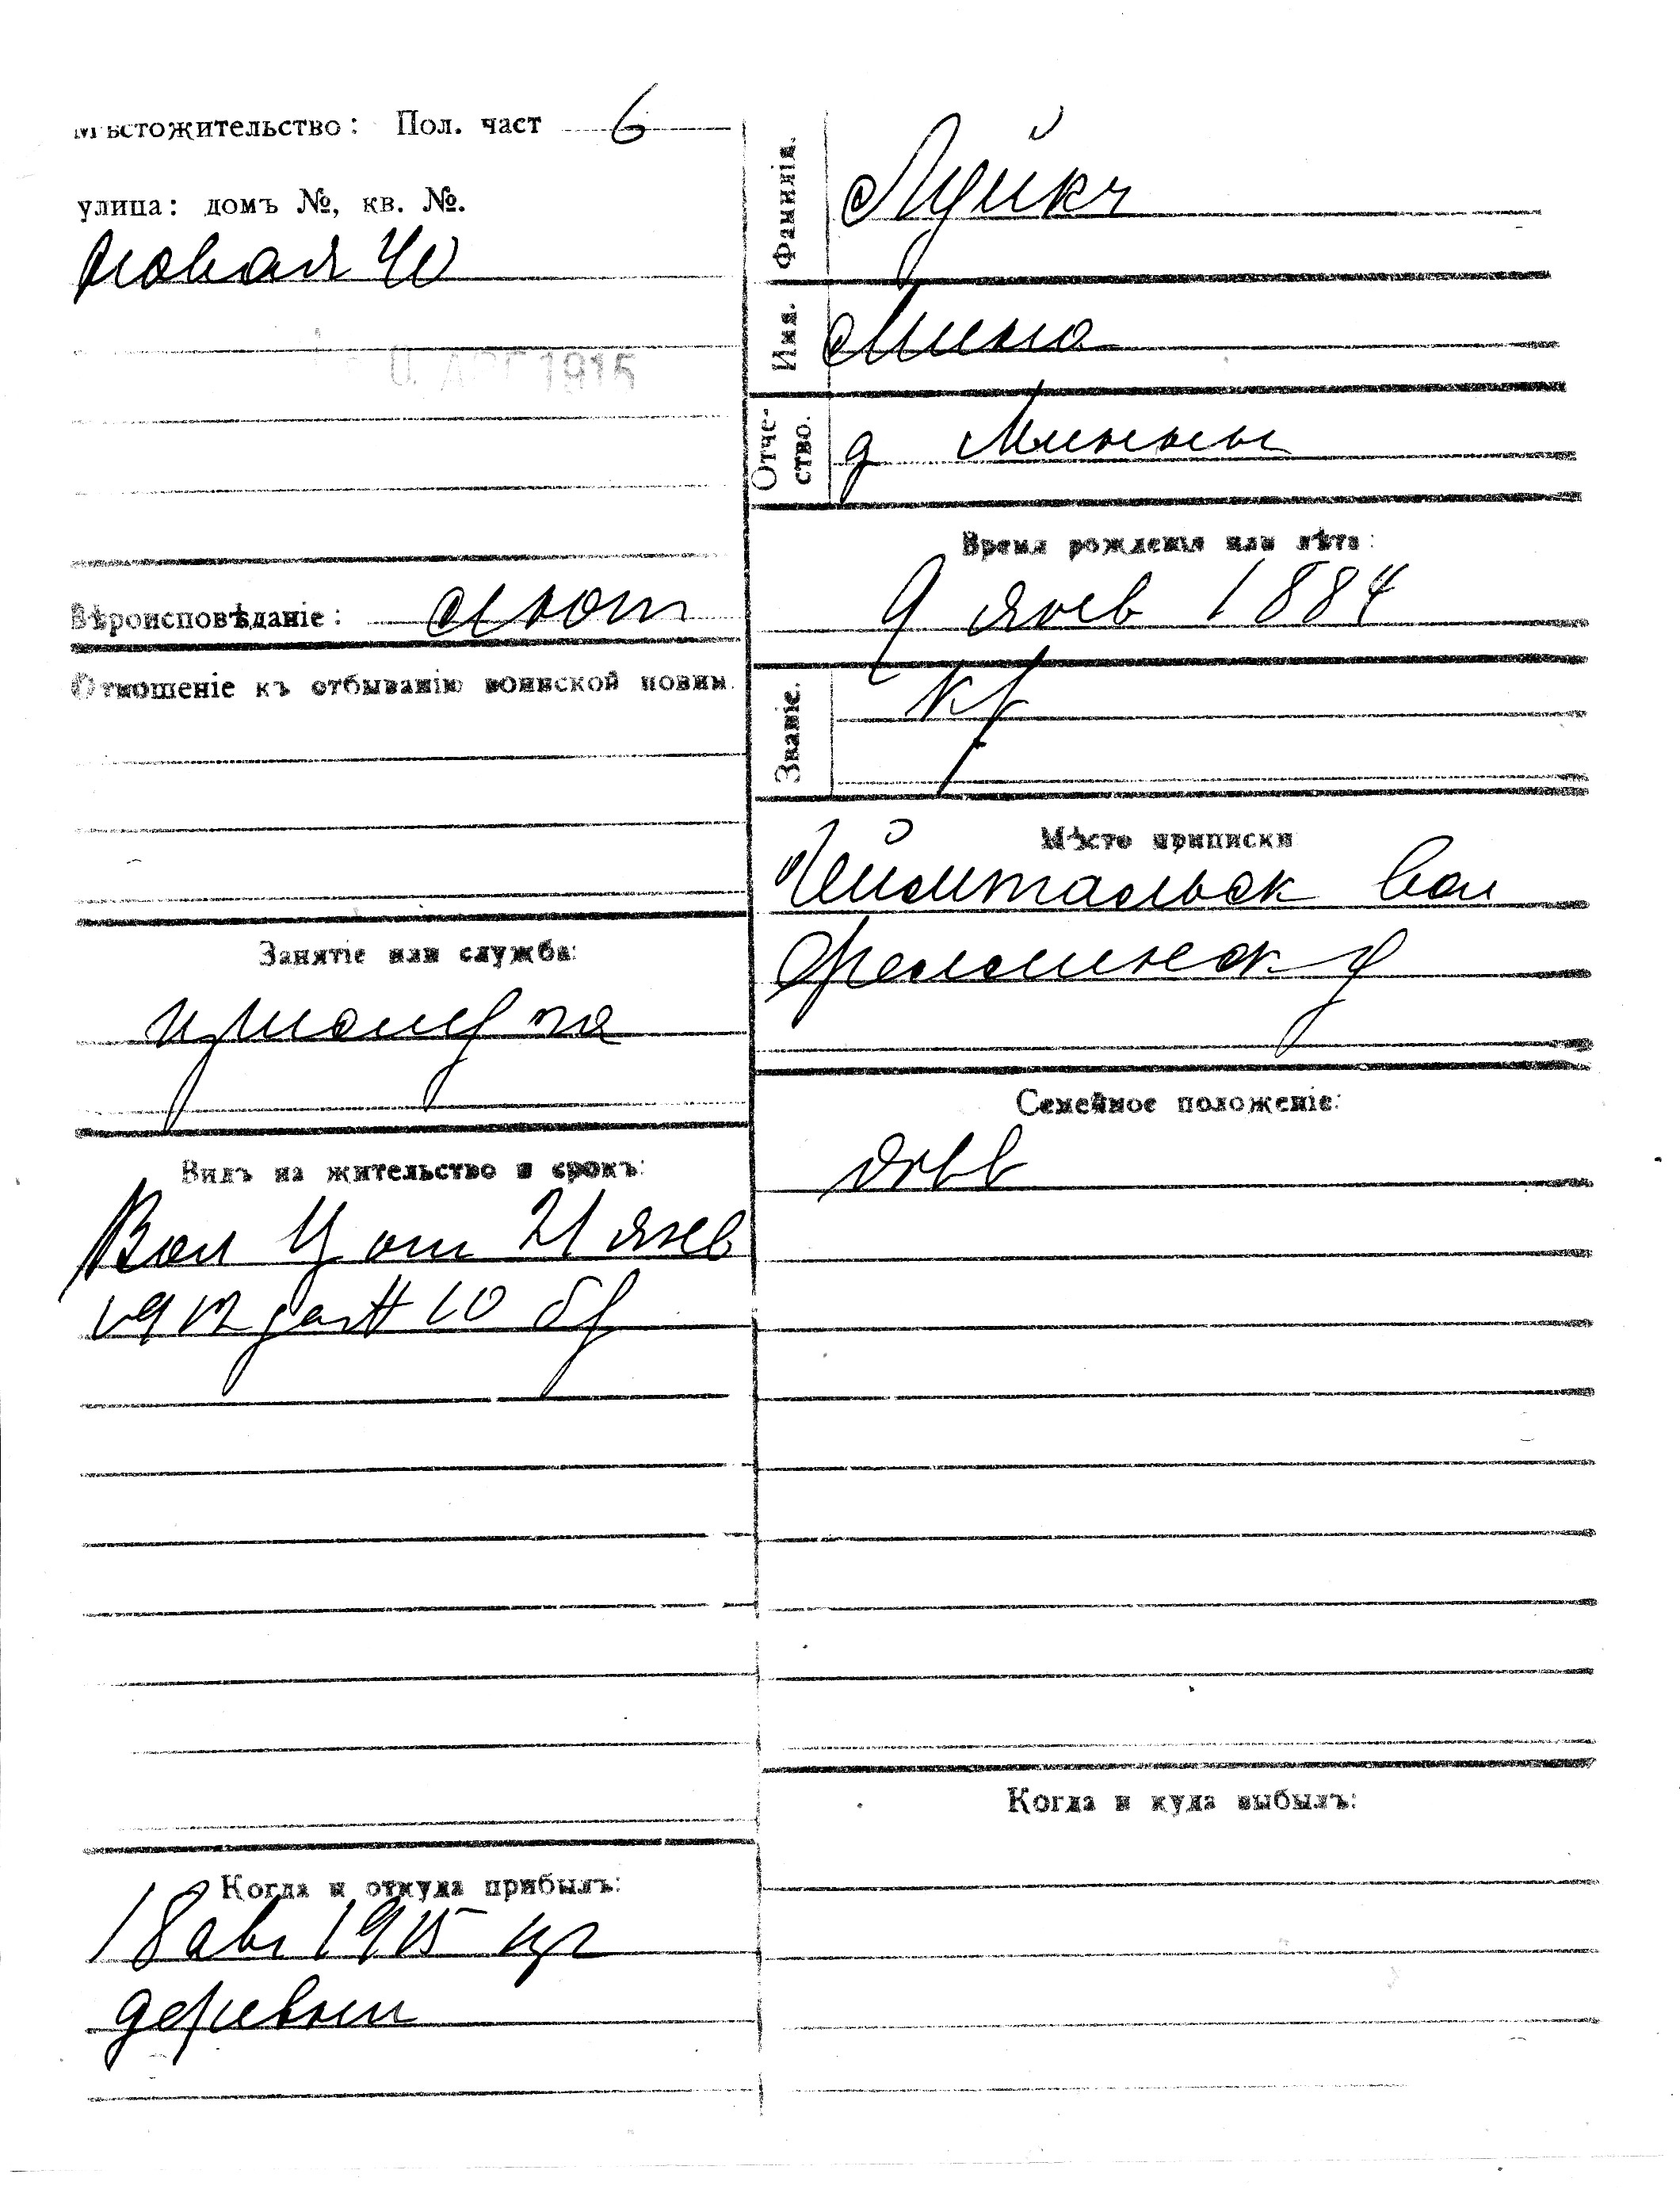 Мѣстожительство: Пол. част 6
улица: домъ №, кв. №.
Новая 40
0. АВГ 1915
Вѣроисповѣданіе: лют
Отношеніе къ отбыванію воинской повин.
Занятіе или служба:
Видъ на жительство и срокъ:
Вол Ц от 21 янв
1912 да # 10 бр
Когда и откуда прибылъ:
18 авг 1915 из
деревни
Фамилія. Луйкъ
Имя. Мина
Отчество. д Минны
Время рожденія или лѣта:
9 янв 1884
Званіе. кр
Мѣсто приписки
Геймтальск вол
Феллинск у
Семейное положеніе:
Когда и куда выбылъ: